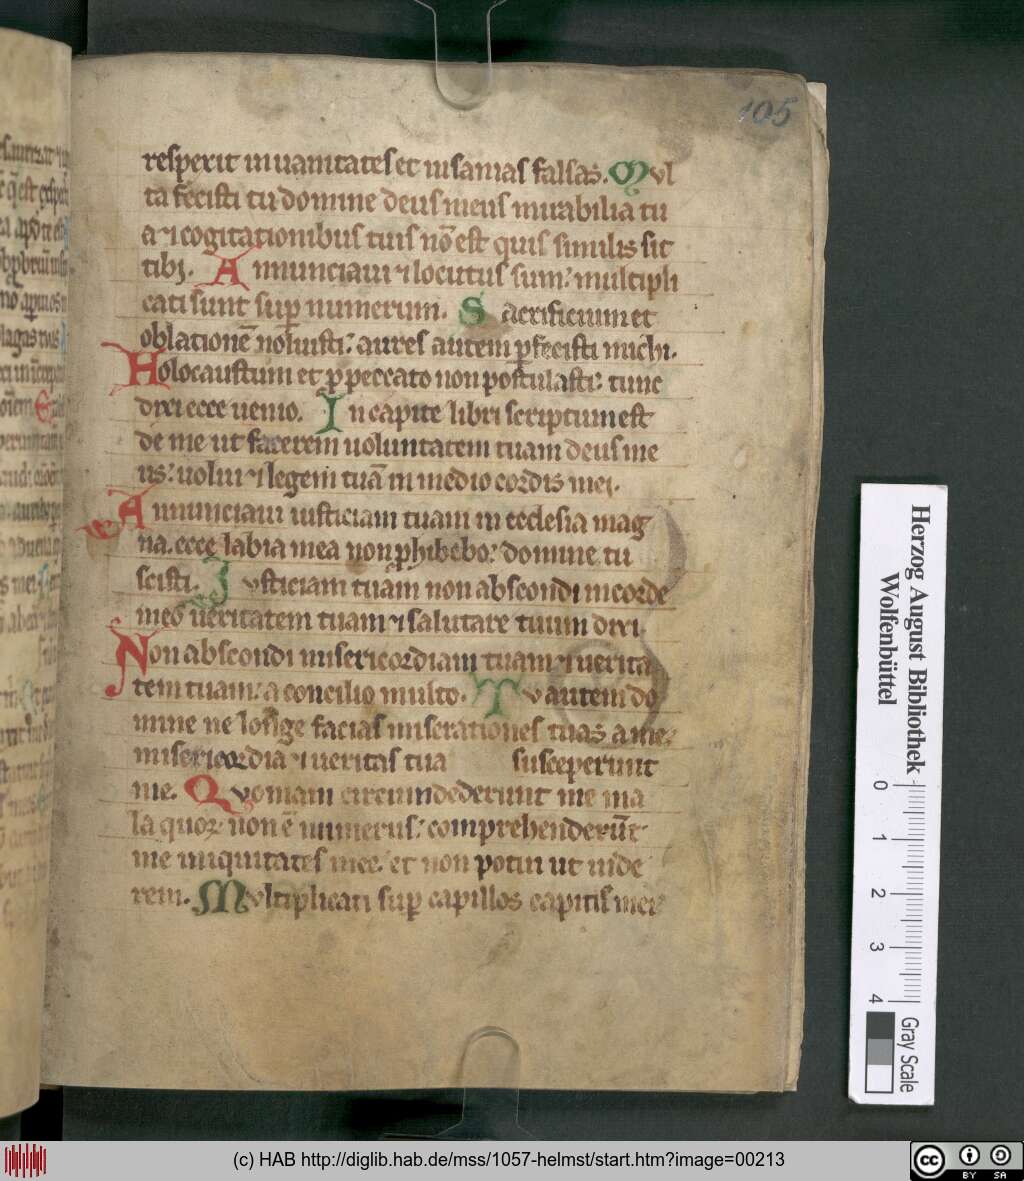 105
resperit in uanitates et insanias falsas. Mul
ta fecisti tu domine deus meus mirabilia tu
a ⁊ cogitationibus tuis nō est quis similis sit
tibi. Annunciaui ⁊ locutus sum: multipli
cati sunt suꝑ numerum. Sacrificium et
oblationē noluisti: aures autem ꝑfecisti michi.
Holocaustum et ꝓ peccato non postulasti: tunc
dixi ecce uenio. In capite libri scriptum est
de me ut facerem uoluntatem tuam deus me
us: uolui ⁊ legem tuā in medio cordis mei.
Annunciaui iusticiam tuam in ecclesia mag
na. ecce labia mea non ꝓhibebo: domine tu
scisti. Iusticiam tuam non abscondi in corde
meo ueritatem tuam ⁊ salutare tuum dixi
Non abscondi misericordiam tuam ⁊ uerita
tem tuam: a concilio multo. Tu autem do
mine ne longe facias miserationes tuas a me:
misericordia ⁊ ueritas tua susceperunt
me. Quoniam circumdederunt me ma
la quor̄ non ē numerus: comprehenderūt
me iniquitates mee. et non potui ut uide
rem. Multiplicati suꝑ capillos capitis mei
Herzog August Bibliothek
Wolfenbüttel
0 1 2 3 4
Gray Scale
(c) HAB http://diglib.hab.de/mss/1057-helmst/start.htm?image=00213
cc BY SA